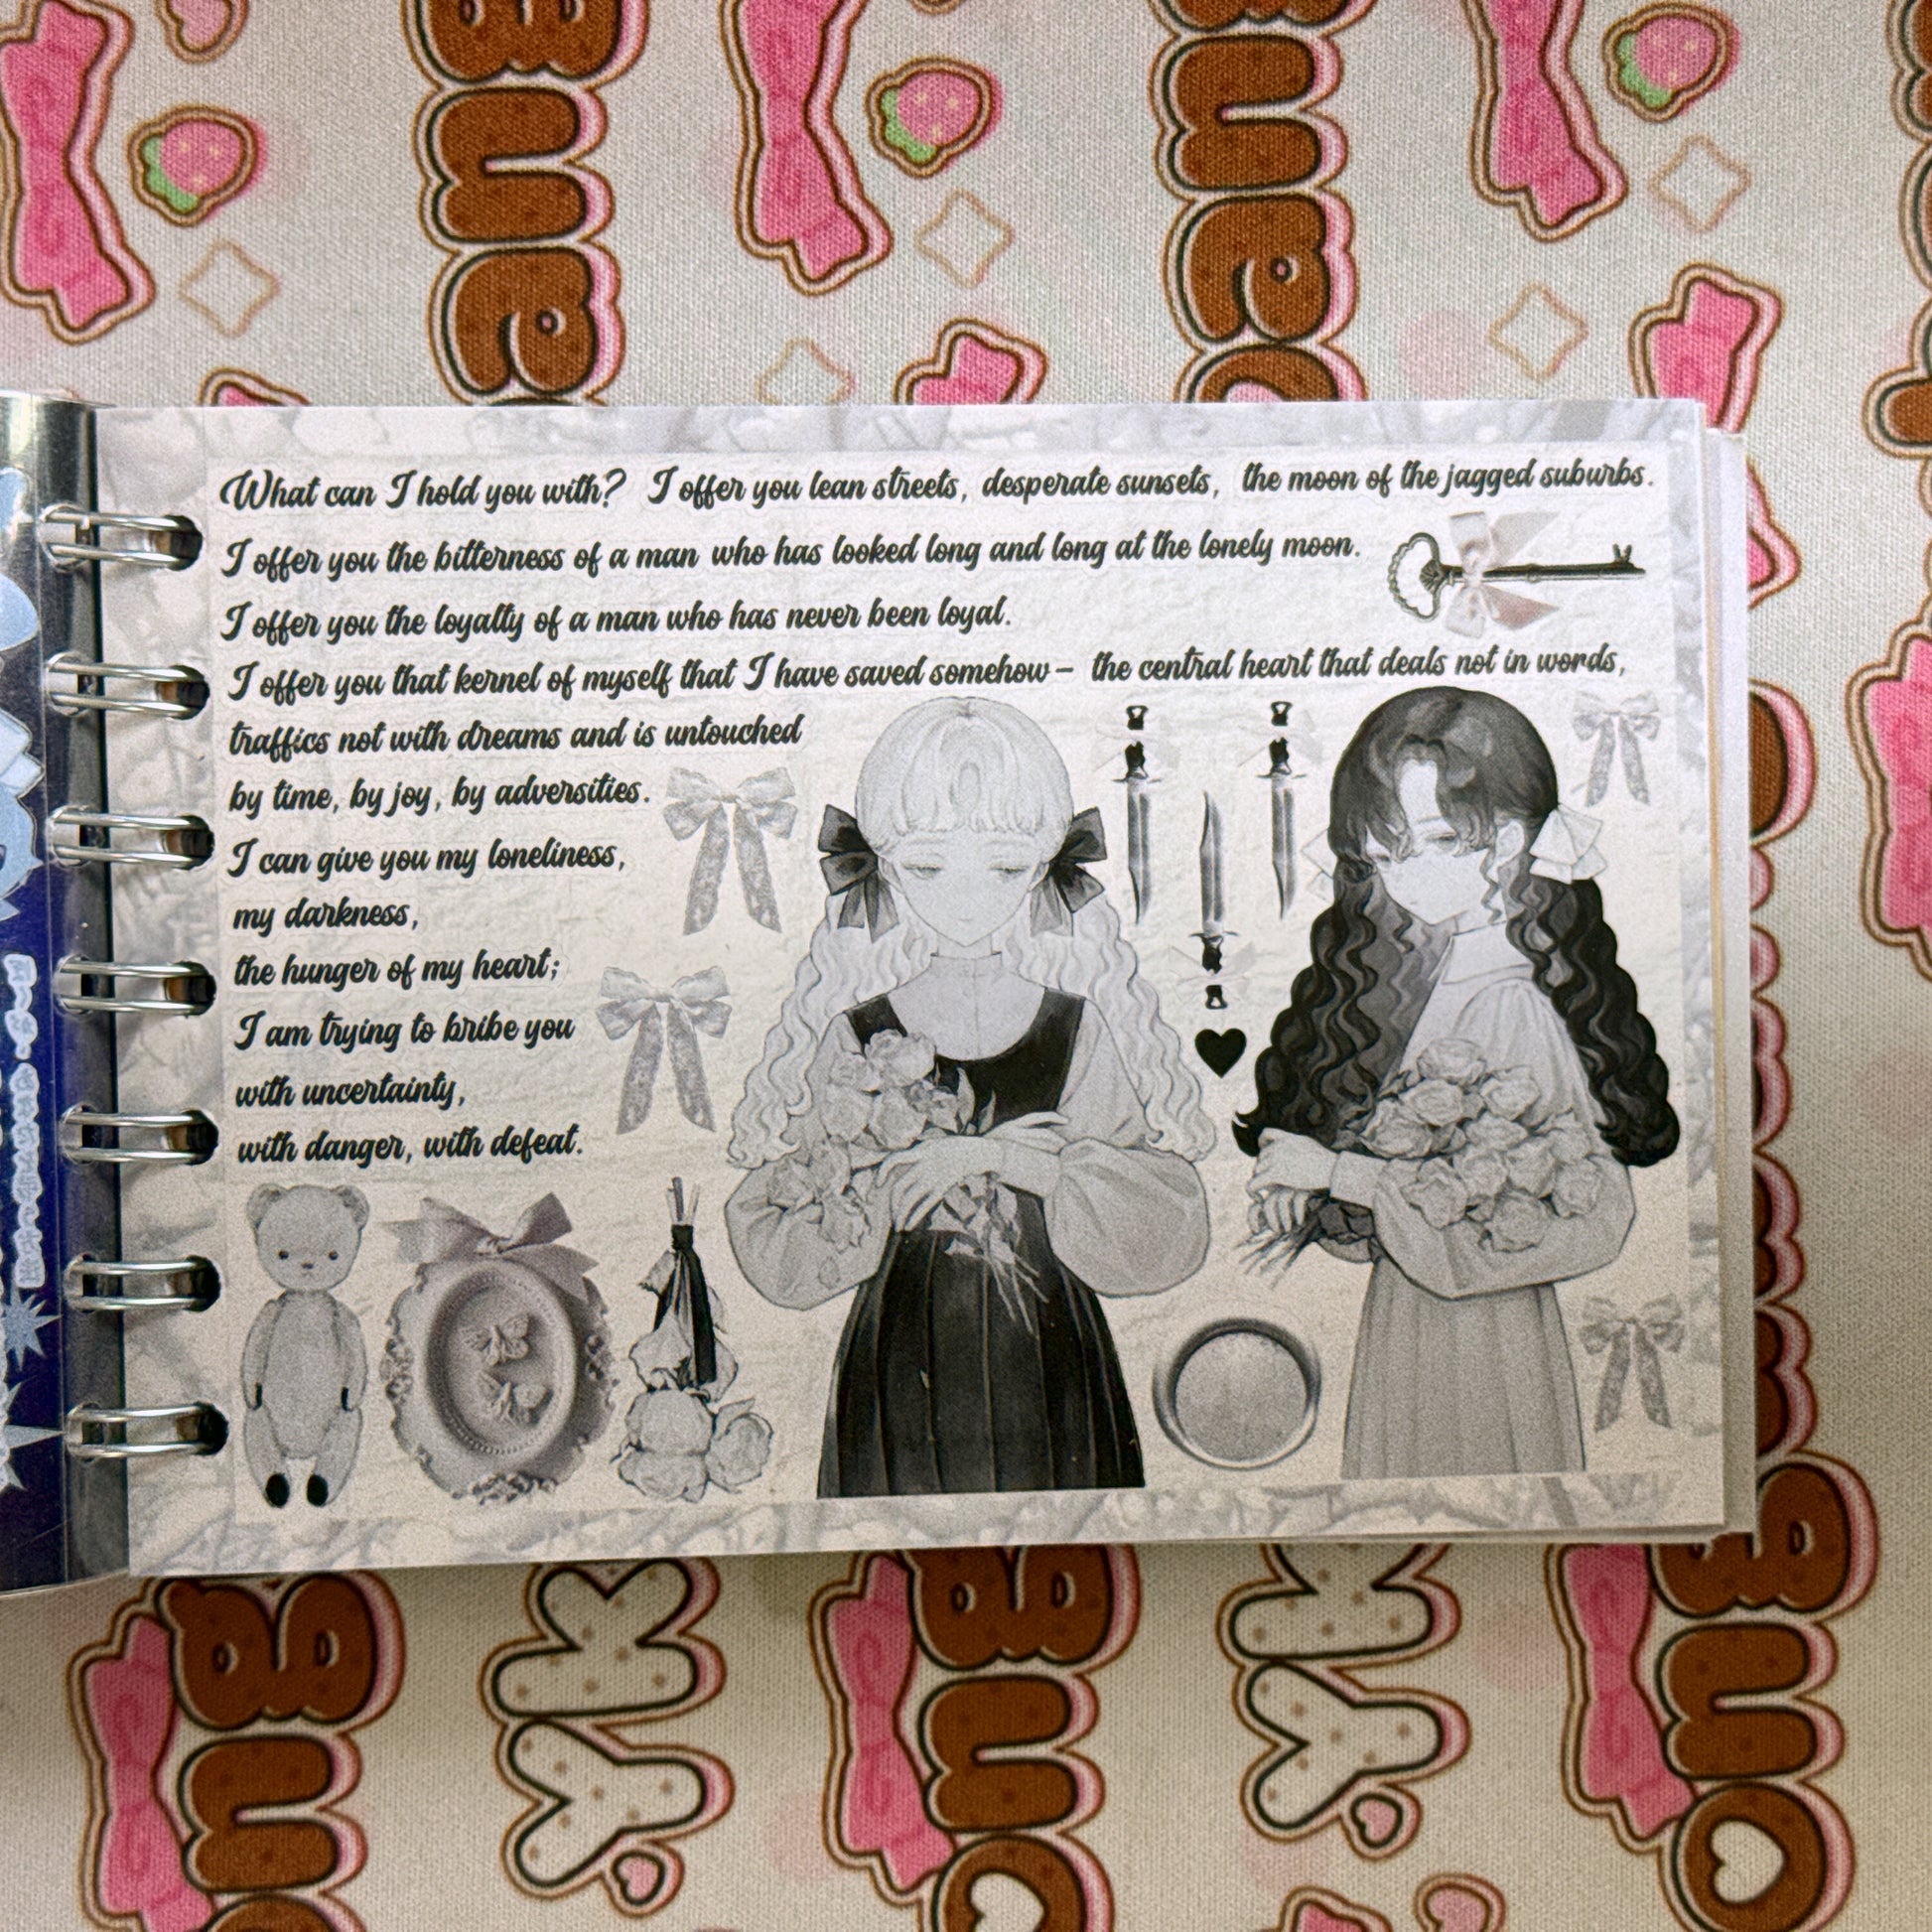 What can I hold you with? I offer you lean streets, desperate sunsets, the moon of the jagged suburbs.
I offer you the bitterness of a man who has looked long and long at the lonely moon.
I offer you the loyalty of a man who has never been loyal.
I offer you that kernel of myself that I have saved somehow— the central heart that deals not in words,
traffics not with dreams and is untouched
by time, by joy, by adversities.
I can give you my loneliness,
my darkness,
the hunger of my heart;
I am trying to bribe you
with uncertainty,
with danger, with defeat.